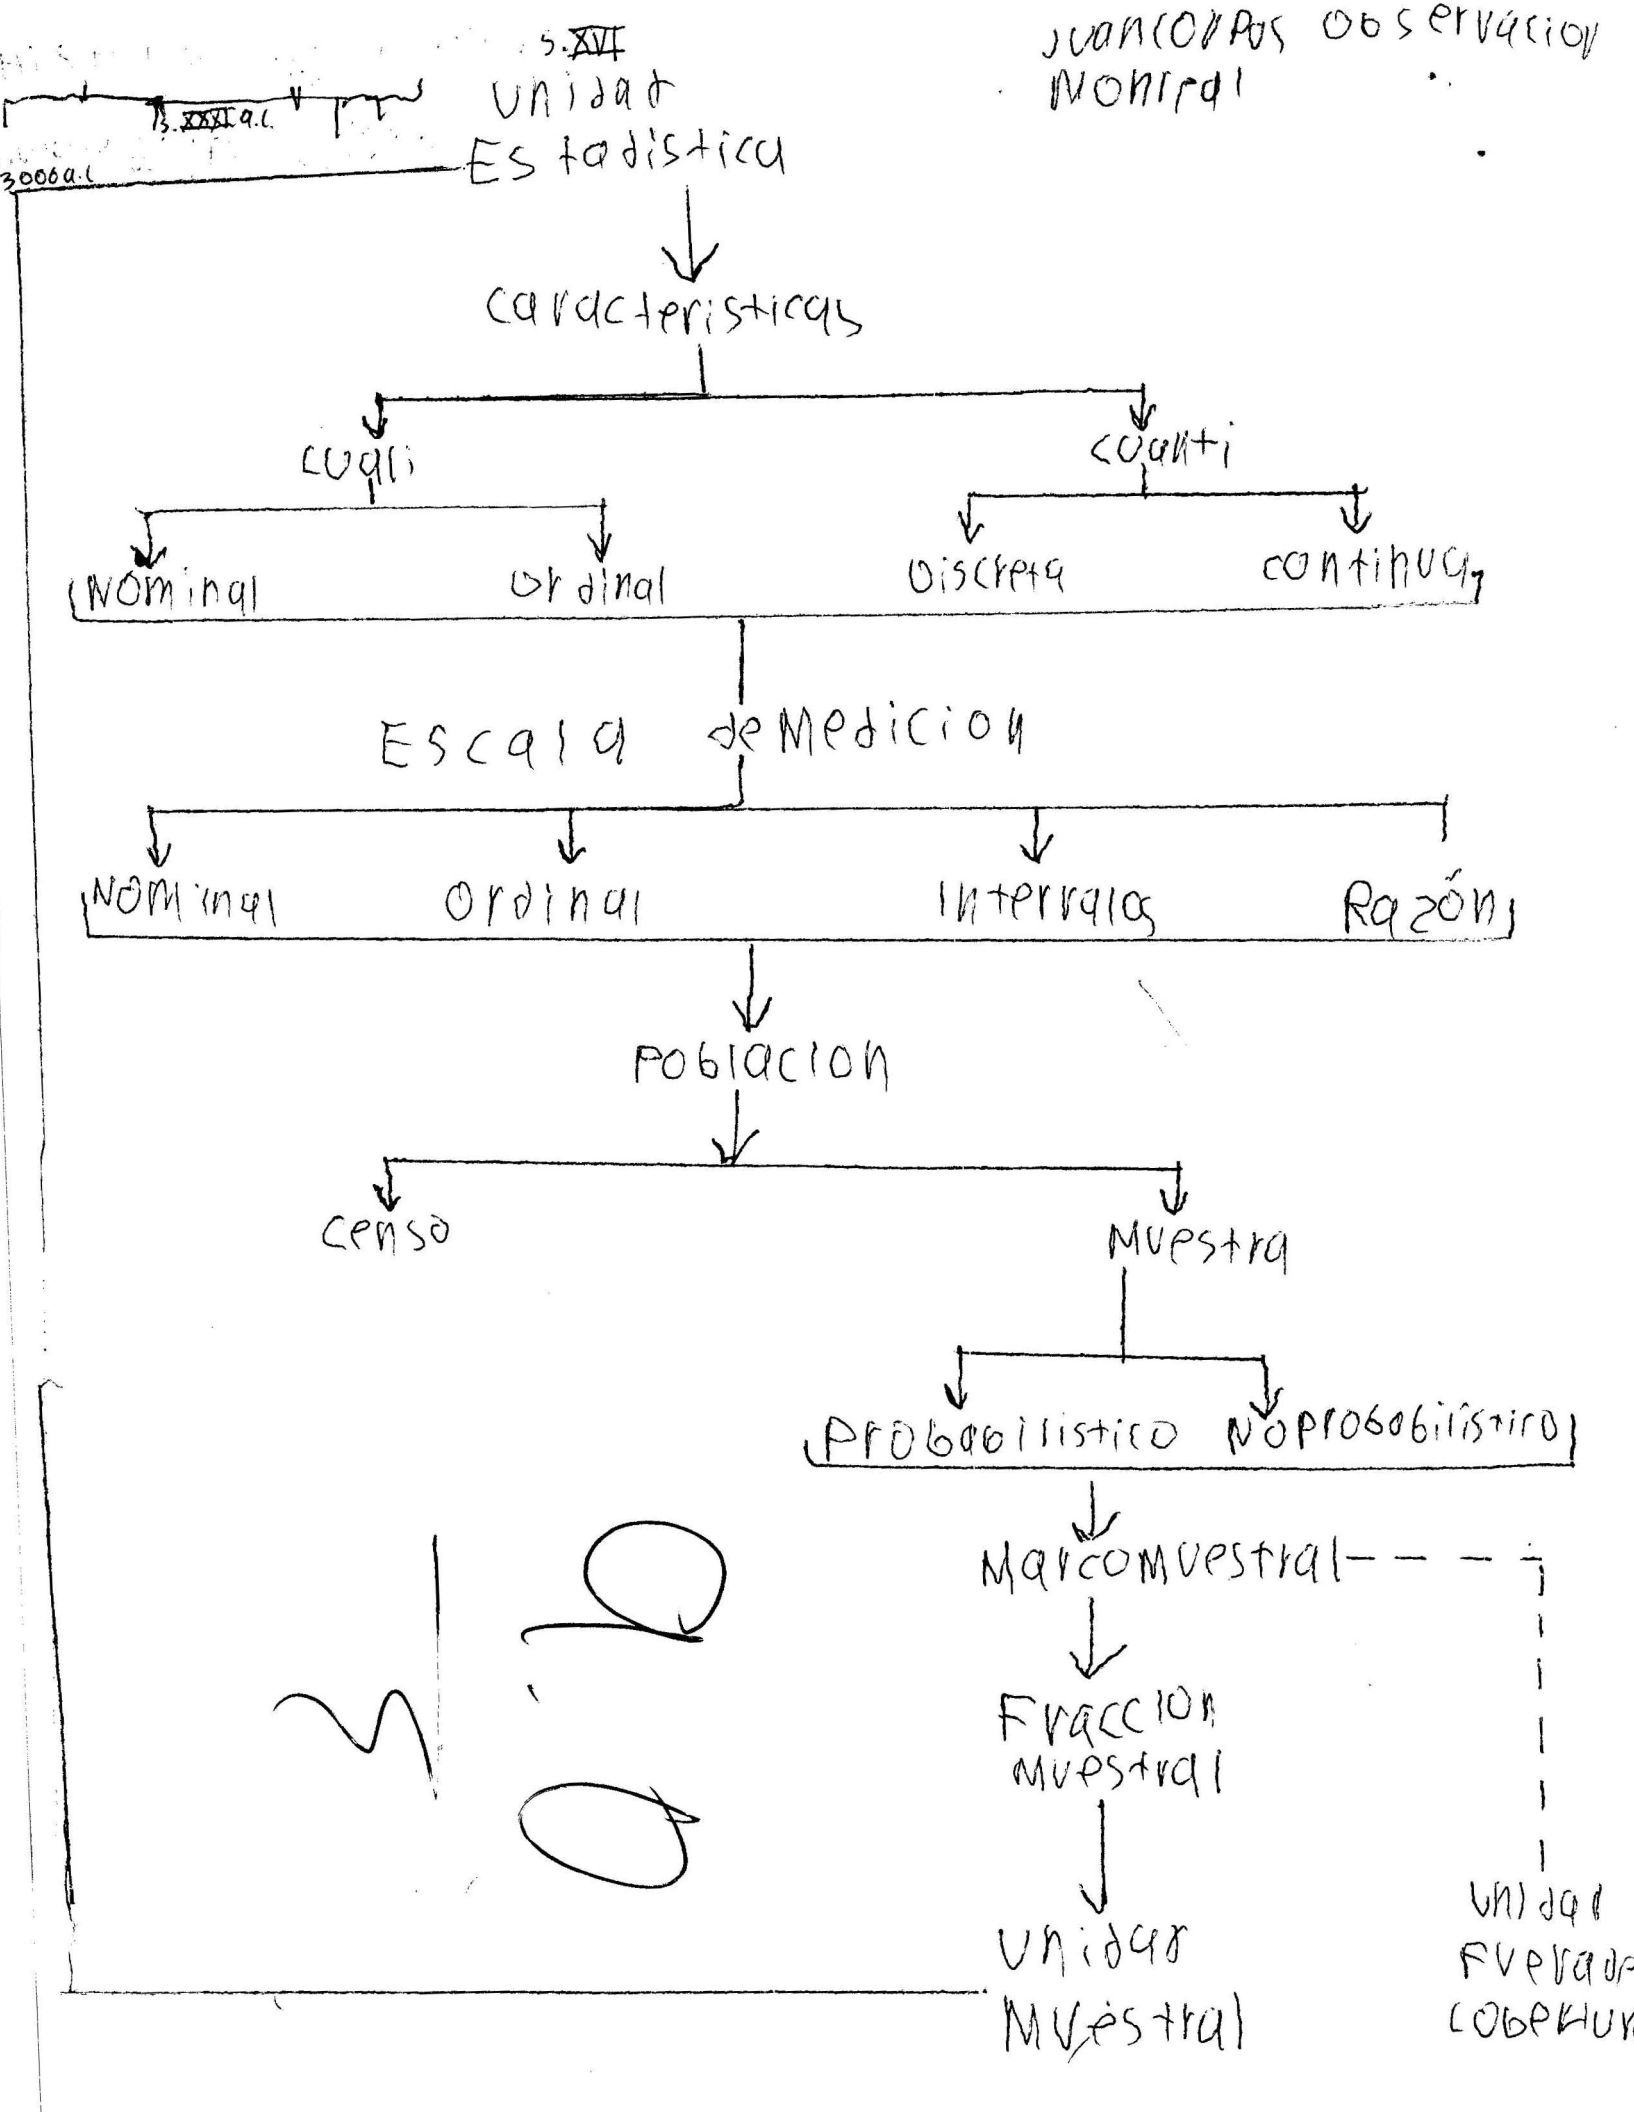 S.XVI
Unidad
Estadistica
Observacion
3000a.c
Caracteristicas
Cuali
Cuanti
Nominal Ordinal Discreta Continua
Escala de Medicion
Nominal Ordinal Intervalos Razón
Poblacion
Censo
Muestra
Probabilistico No Probabilistico
Marco Muestral
Fraccion
Muestral
Unidad
Muestral
Unidad
Fuera de
Cobertur